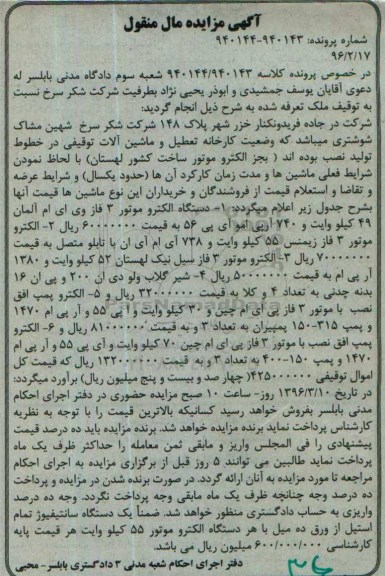 آگهی مزایده مال منقول
شماره پرونده: ۹۴۰۱۴۳-۹۴۰۱۴۴
۹۶/۲/۱۷
در خصوص پرونده کلاسه ۹۴۰۱۴۴/۹۴۰۱۴۳ شعبه سوم دادگاه مدنی بابلسر له
دعوی آقایان یوسف جمشیدی و ابوذر یحیی نژاد بطرفیت شرکت شکر سرخ نسبت
به توقیف ملک تعرفه شده به شرح ذیل انجام گردید:
شرکت در جاده فریدونکنار خزر شهر پلاک ۱۴۸ شرکت شکر سرخ شهین مشاک
شوشتری میباشد که وضعیت کارخانه تعطیل و ماشین آلات توقیفی در خطوط
تولید نصب بوده اند ( بجز الکترو موتور ساخت کشور لهستان) با لحاظ نمودن
شرایط فعلی ماشین ها و مدت زمان کارکرد آن ها (حدود یکسال) و شرایط عرضه
و تقاضا و استعلام قیمت از فروشندگان و خریداران این نوع ماشین ها قیمت آنها
بشرح جدول زیر اعلام میگردد: ۱- دستگاه الکترو موتور ۳ فاز وی ای ام آلمان
۴۹ کیلو وایت و ۷۴۰ آر پی ام آی پی ۵۶ به قیمت ۶۰۰۰۰۰۰۰ ریال ۲- الکترو
موتور ۳ فاز زیمنس ۵۵ کیلو وایت و ۷۳۸ آی ام آی ان با تابلو متصل به قیمت
۷۰۰۰۰۰۰۰ ریال ۳- الکترو موتور ۳ فاز سیل نیک لهستان ۵۲ کیلو وایت و ۱۳۸۰
آر پی ام به قیمت ۵۰۰۰۰۰۰۰ ریال ۴- شیر گلاب ولو دی ان ۲۰۰ و پی ان ۱۶
بدنه چدنی به تعداد ۴ و کلا به قیمت ۳۲۰۰۰۰۰۰ ریال و ۵- الکترو پمپ افق
نصب با موتور ۳ فاز پی ای ام چین و ۳۰ کیلو وایت و آی پی ۵۵ و آر پی ام ۱۴۷۰
و پمپ ۳۱۵-۱۵۰ پمپیران به تعداد ۳ و به قیمت ۸۱۰۰۰۰۰۰ ریال و ۶- الکترو
پمپ افق نصب با موتور ۳ فاز پی ای ام چین ۷۰ کیلو وایت و آی پی ۵۵ و آر پی ام
۱۴۷۰ و پمپ ۱۵۰-۴۰۰ به تعداد ۳ و به قیمت ۱۳۲۰۰۰۰۰۰ ریال که قیمت کل
اموال توقیفی ۴۲۵۰۰۰۰۰۰( چهار صد و بیست و پنج میلیون ریال) برآورد میگردد:
در تاریخ ۱۳۹۶/۳/۱۰ روز- ساعت ۱۰ صبح مزایده حضوری در دفتر اجرای احکام
مدنی بابلسر بفروش خواهد رسید کسانیکه بالاترین قیمت را با توجه به نظریه
کارشناس پرداخت نماید برنده مزایده خواهد شد. برنده مزایده باید ده درصد قیمت
پیشنهادی را فی المجلس واریز و مابقی ثمن معامله را حداکثر ظرف یک ماه
پرداخت نماید طالبین می توانند ۵ روز قبل از برگزاری مزایده به اجرای احکام
مراجعه تا مورد مزایده به آنان ارائه گردد. در صورت برنده شدن در مزایده و پرداخت
ده درصد وجه چنانچه ظرف یک ماه مابقی وجه پرداخت نگردد. وجه ده درصد
واریزی به حساب دادگستری منظور خواهد شد. ضمناً یک دستگاه سانتیفیوژ تمام
استیل از ورق ده میل با هر دستگاه الکترو موتور ۵۵ کیلو وایت هر قیمت پایه
کارشناسی ۶۰۰/۰۰۰/۰۰۰ میلیون ریال می باشد.
دفتر اجرای احکام شعبه مدنی ۳ دادگستری بابلسر- محبی